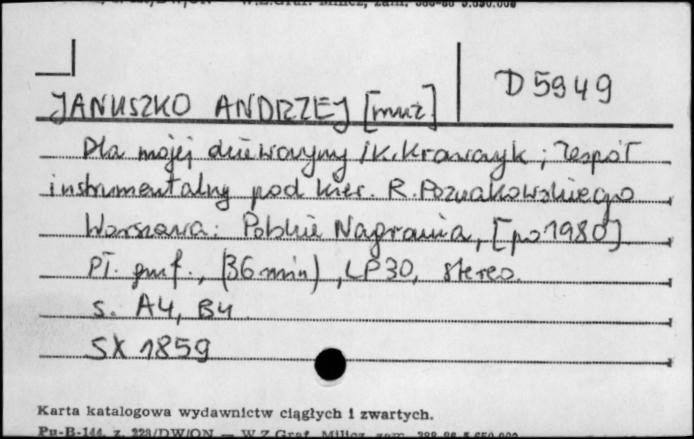 D 5949
JANUSZKO ANDRZEJ [muz]
Dla mojej dziewczyny / K. Krawczyk ; Zespół
instrumentalny pod kier. R. Poznakowskiego
Warszawa : Polskie Nagrania, [po 1980]
Pł. gmf., (36 min), LP 30, stereo.
s. A4, B4
SX 1859
Karta katalogowa wydawnictw ciągłych i zwartych.
Pu-B-144, z. 223/DW/ON — W.Z.Graf. Milicz, zam. 388-86 5.650.000